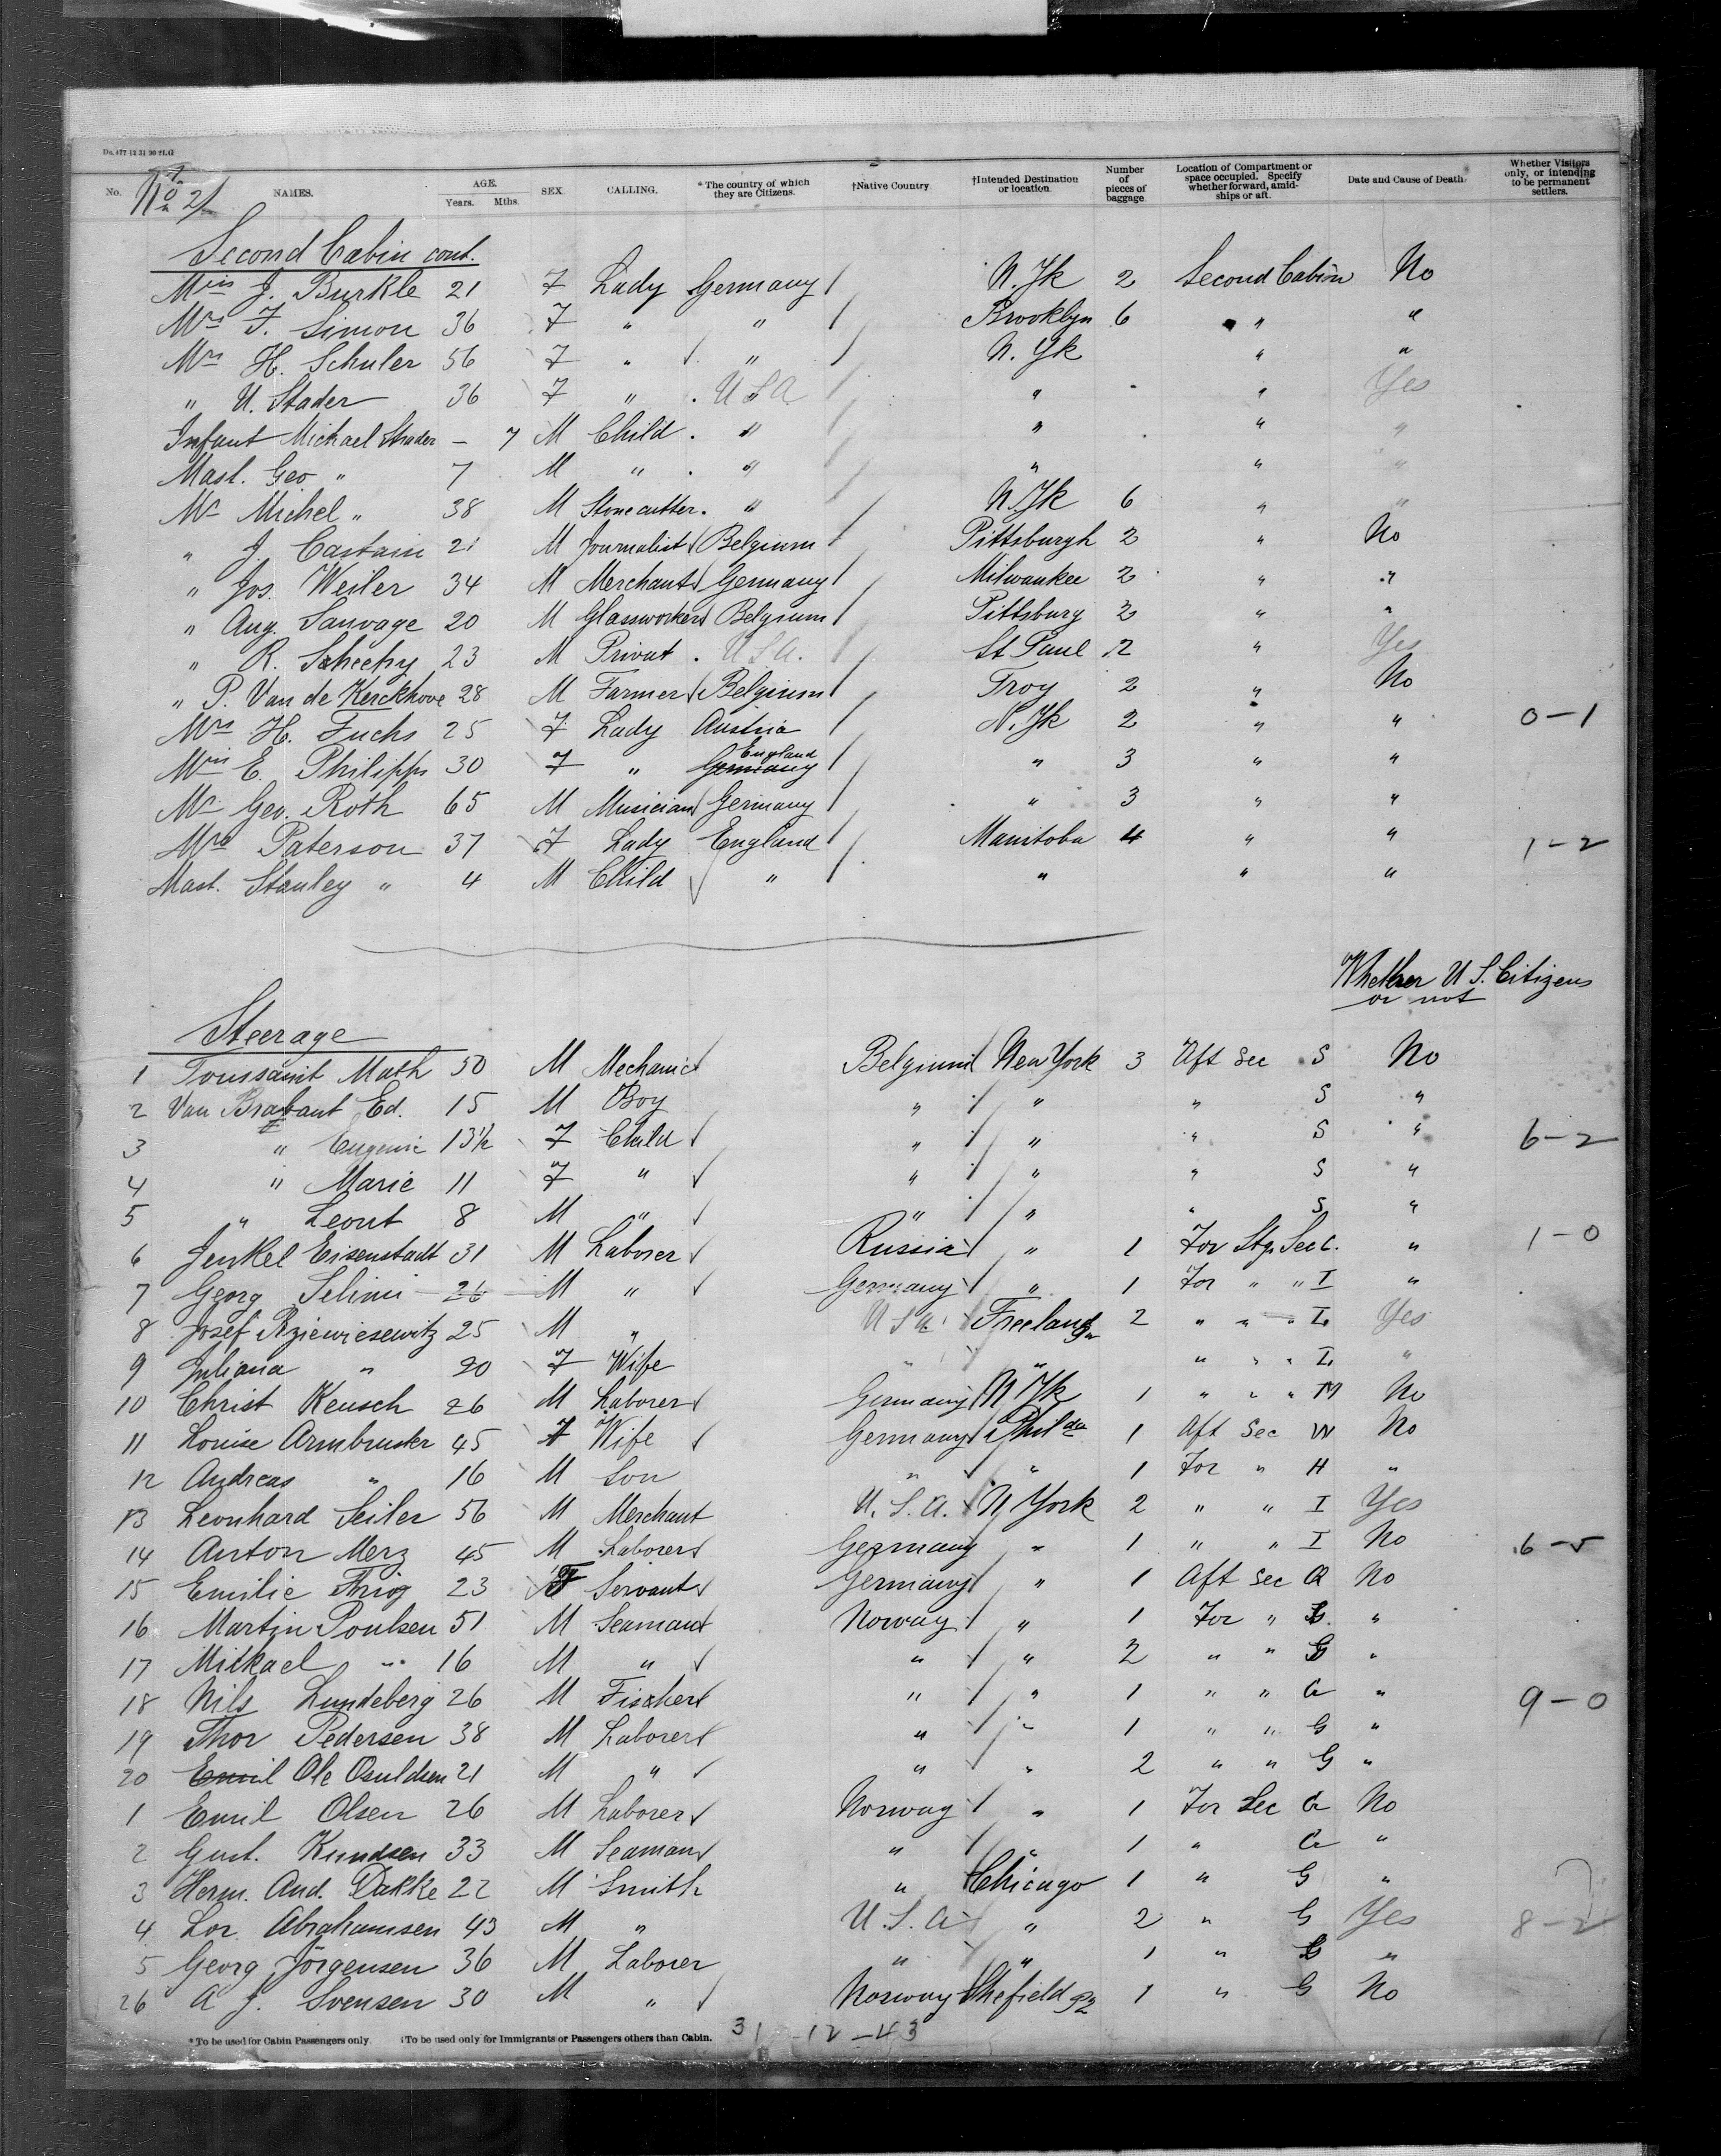 Do. 477 12 31 90 2LG
No. NAMES. AGE. Years. Mths. SEX. CALLING. *The country of which they are Citizens. †Native Country †Intended Destination or location. Number of pieces of baggage Location of Compartment or space occupied. Specify whether forward, amidships or aft. Date and Cause of Death. Whether Visitors only, or intending to be permanent settlers.
No 2/
Second Cabin cont.
Miss J. Burkle 21 F Lady Germany N. Yk 2 Second Cabin No
Mrs F. Simon 36 F " " Brooklyn 6 " "
Mrs H. Schuler 56 F " " N. Yk " "
" U. Stader 36 F " U S A " " Yes
Infant Michael Stader - 7 M Child " " " "
Mast. Geo " 7 M " " " " "
Mr Michel " 38 M Stonecutter " N. Yk 6 " "
" J. Castain 21 M Journalist Belgium Pittsburgh 2 " No
" Jos. Weiler 34 M Merchant Germany Milwaukee 2 " "
" Aug. Sauvage 20 M Glassworker Belgium Pittsburg 2 " "
" R. Scheehy 23 M Privat U.S.A. St Paul 2 " Yes
" P. Van de Kerckhove 28 M Farmer Belgium Troy 2 " No
Mrs H. Fuchs 25 F Lady Austria N. Yk 2 " " 0-1
Miss E. Philipps 30 F " Germany England " 3 " "
Mr Geo. Roth 65 M Musician Germany " 3 " "
Mrs Paterson 37 F Lady England Manitoba 4 " " 1-2
Mast. Stanley " 4 M Child " " " "
Whether U S. Citizens or not
Steerage
1 Toussaint Math 50 M Mechanic Belgium New York 3 Aft Sec S No
2 Van Brabant Ed. 15 M Boy " " " S "
3 " Eugenie 13½ F Child " " " S " 6-2
4 " Marie 11 F " " " " S "
5 " Leont 8 M " " " " S "
6 Jenkel Eisenstadt 31 M Laborer Russia " 1 For Stg. Sec C. " 1-0
7 Georg Selimi 26 M " Germany " 1 For " " I "
8 Josef Rziewiesewitz 25 M " U S A Freeland Pa 2 " " " L Yes
9 Juliana " 20 F Wife " " " " " L "
10 Christ Keusch 26 M Laborer Germany N Yk 1 " " " M No
11 Louise Armbruster 45 F Wife Germany Philda 1 Aft Sec W No
12 Andreas " 16 M Son " " 1 For " H "
13 Leonhard Seiler 56 M Merchant U. S. A. N York 2 " " I Yes
14 Anton Merz 45 M Laborer Germany " 1 " " I No 6-5
15 Emilie 23 F Servant Germany " 1 Aft Sec Q No
16 Martin Poulsen 51 M Seaman Norway " 1 For " G. "
17 Mikael " 16 M " " " 2 " " G "
18 Nils Lundeberg 26 M Fischer " " 1 " " G " 9-0
19 Thor Pedersen 38 M Laborer " " 1 " " G "
20 Emil Ole Osuldsen 21 M " " " 2 " " G "
1 Emil Olsen 26 M Laborer Norway " 1 For Sec G No
2 Gust. Kundsen 33 M Seaman " " 1 " G "
3 Herm. And. Dakke 22 M Smith " Chicago 1 " G "
4 Lor. Abrahamsen 43 M " U. S. A " 2 " G Yes 8-2
5 Georg Jörgensen 36 M Laborer " " 1 " G "
26 A J. Svensen 30 M " Norway Shefield 1 " G No
*To be used for Cabin Passengers only. †To be used only for Immigrants or Passengers others than Cabin. 31 -12-43